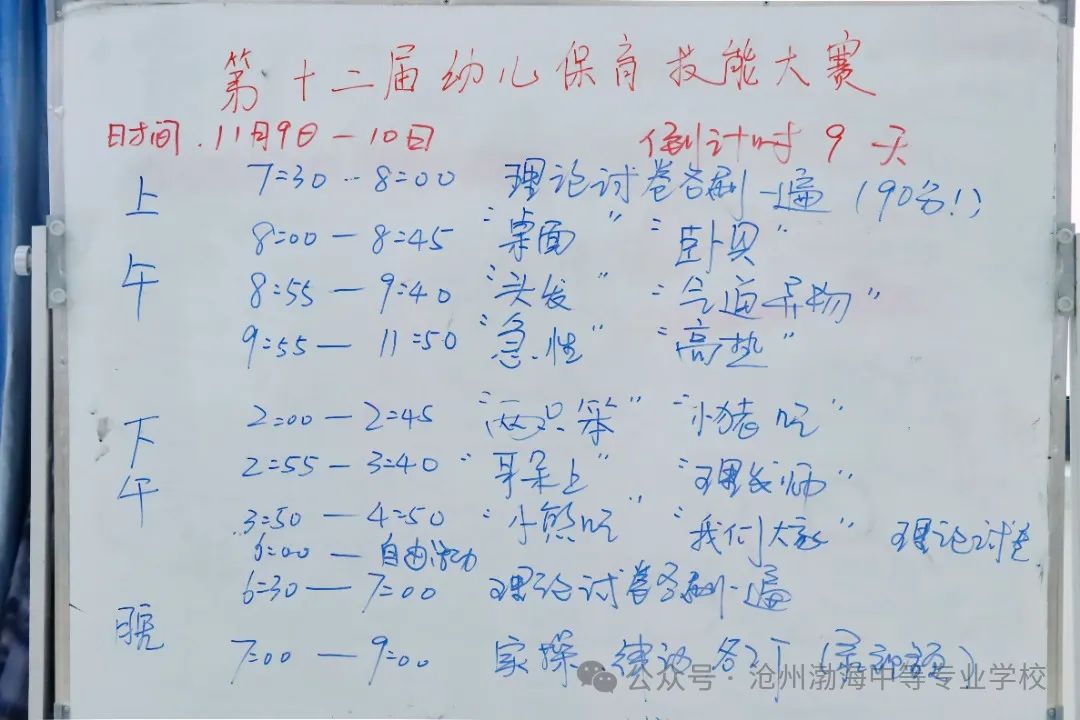 第十二届幼儿保育技能大赛
日时间.11月9日—10日 倒计时 9 天
上午
7:30--8:00 理论讨卷各刷一遍（90分!）
8:00—8:45 "桌面" "卧具"
8:55—9:40 "头发" "气道异物"
9:55—11:50 "急.性" "高热"
下午
2:00—2:45 "两只笨" "小猪吃"
2:55—3:40 "耳朵上" "理发师"
3:50—4:50 "小熊吃" "我们大家" 理论讨卷
6:00—自由活动
晚
6:30—7:00 理论讨卷各刷一遍
7:00—9:00 家 各2丁
公众号·沧州渤海中等专业学校